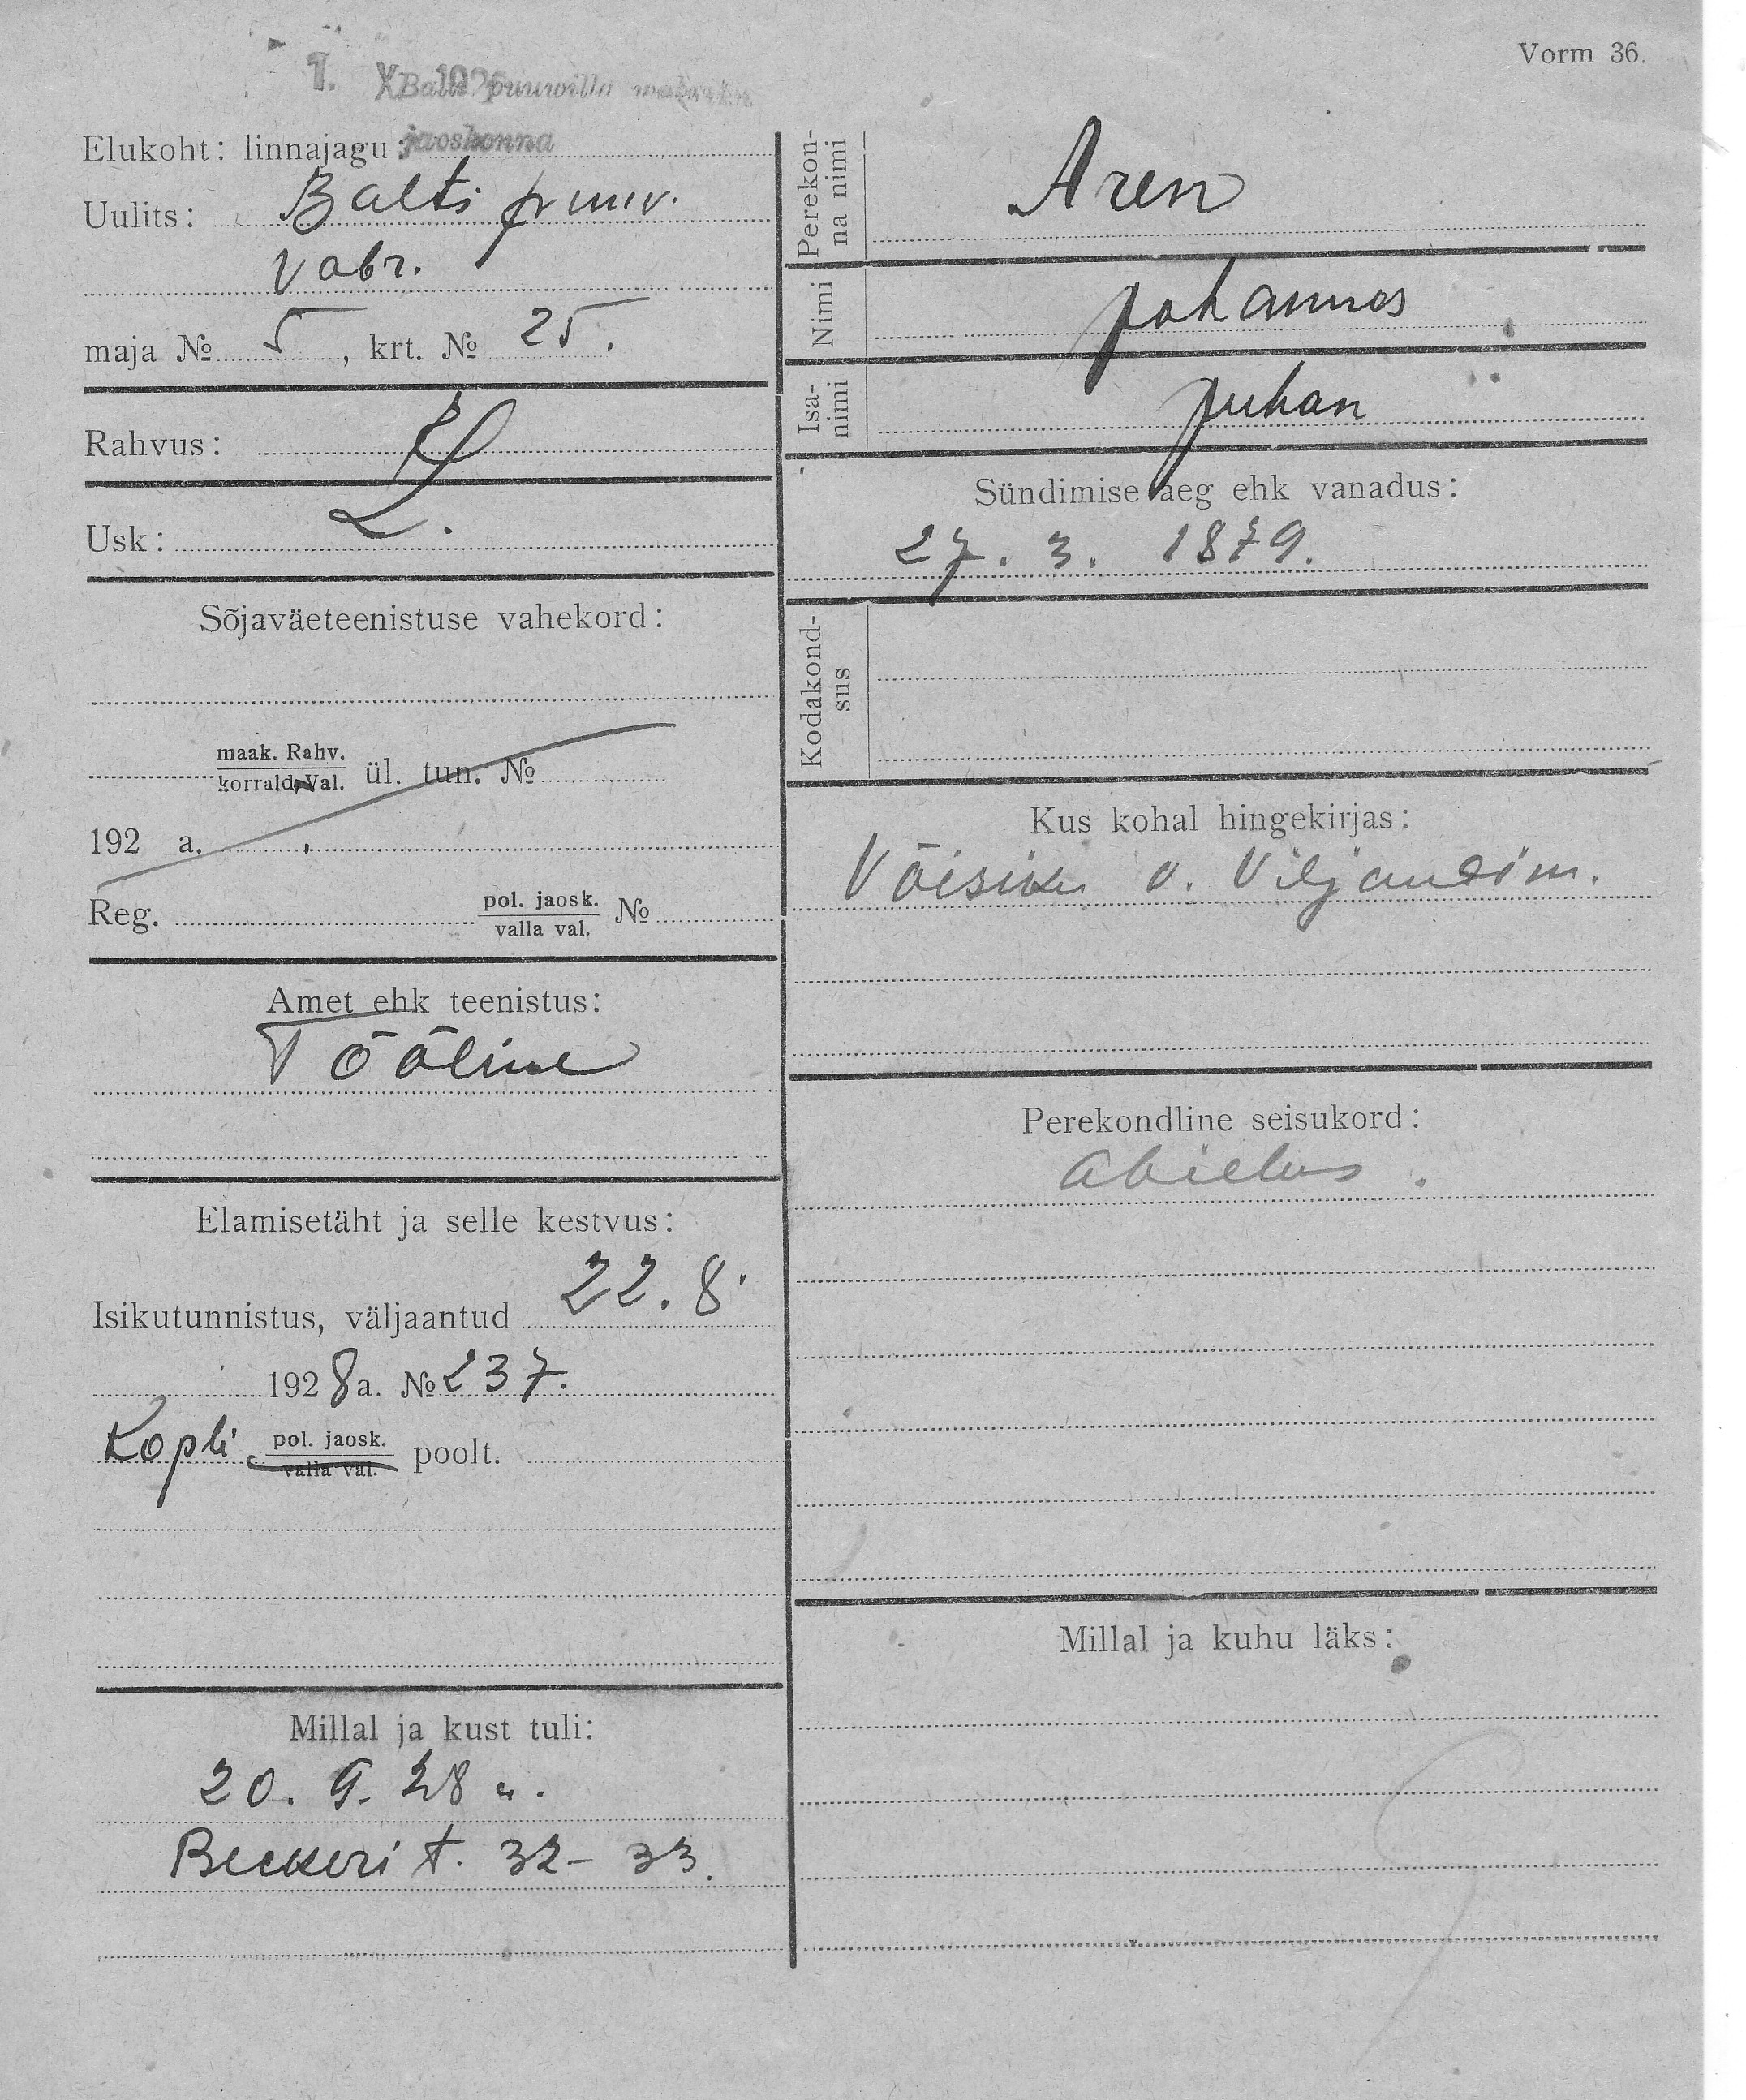 Vorm 36.
1. X 1926
Balti puuwilla wabriku
jaoskonna
Elukoht: linnajagu:
Uulits: Balti puuv.
vabr.
maja № 5, krt. № 25.
Rahvus: E
Usk: L.
Sõjaväeteenistuse vahekord:
maak. Rahv.
korrald. Val. ül. tun. №
192 a.
Reg. pol. jaosk.
valla val. №
Amet ehk teenistus:
Tööline
Elamisetäht ja selle kestvus:
Isikutunnistus, väljaantud 22. 8.
1928 a. № 237.
Kopli pol. jaosk.
valla val. poolt.
Millal ja kust tuli:
20. 9. 28 a.
Beckeri t. 32-33.
Perekon-
na nimi Aren
Nimi Johannes
Isa-
nimi Juhan
Sündimise aeg ehk vanadus:
27. 3. 1879.
Kodakond-
sus
Kus kohal hingekirjas:
Võisiku v. Viljandim.
Perekondline seisukord:
abielus.
Millal ja kuhu läks: